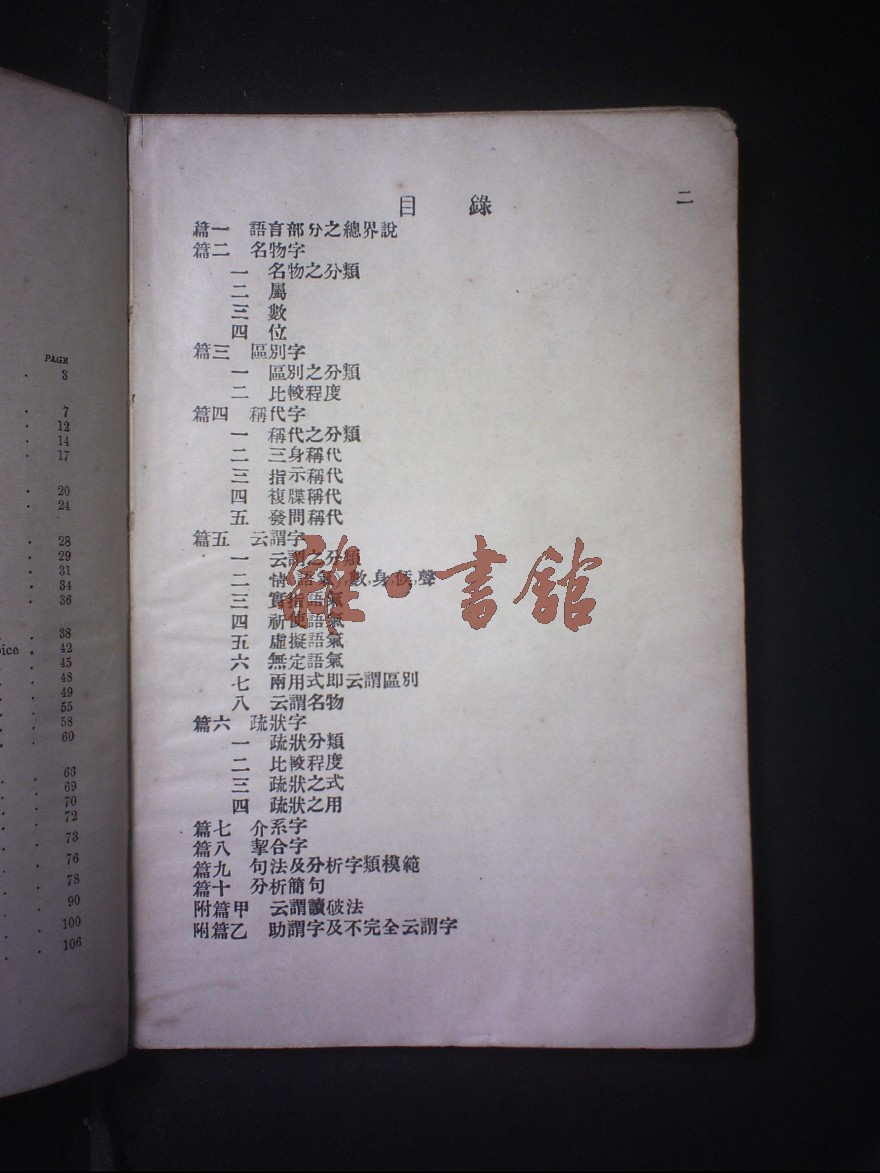 PAGE
3
7
12
14
17
20
24
28
29
31
34
36
38
oice . 42
45
48
49
55
58
60
63
69
70
72
73
76
78
90
100
106
二
目 錄
篇一 語言部分之總界說
篇二 名物字
一 名物之分類
二 屬
三 數
四 位
篇三 區別字
一 區別之分類
二 比較程度
篇四 稱代字
一 稱代之分類
二 三身稱代
三 指示稱代
四 複牒稱代
五 發問稱代
篇五 云謂字
一 云謂之分類
二 情(語氣),數,身,候,聲
三 實指語氣
四 祈使語氣
五 虛擬語氣
六 無定語氣
七 兩用式即云謂區別
八 云謂名物
篇六 疏狀字
一 疏狀分類
二 比較程度
三 疏狀之式
四 疏狀之用
篇七 介系字
篇八 挈合字
篇九 句法及分析字類模範
篇十 分析簡句
附篇甲 云謂讀破法
附篇乙 助謂字及不完全云謂字
雜·書館